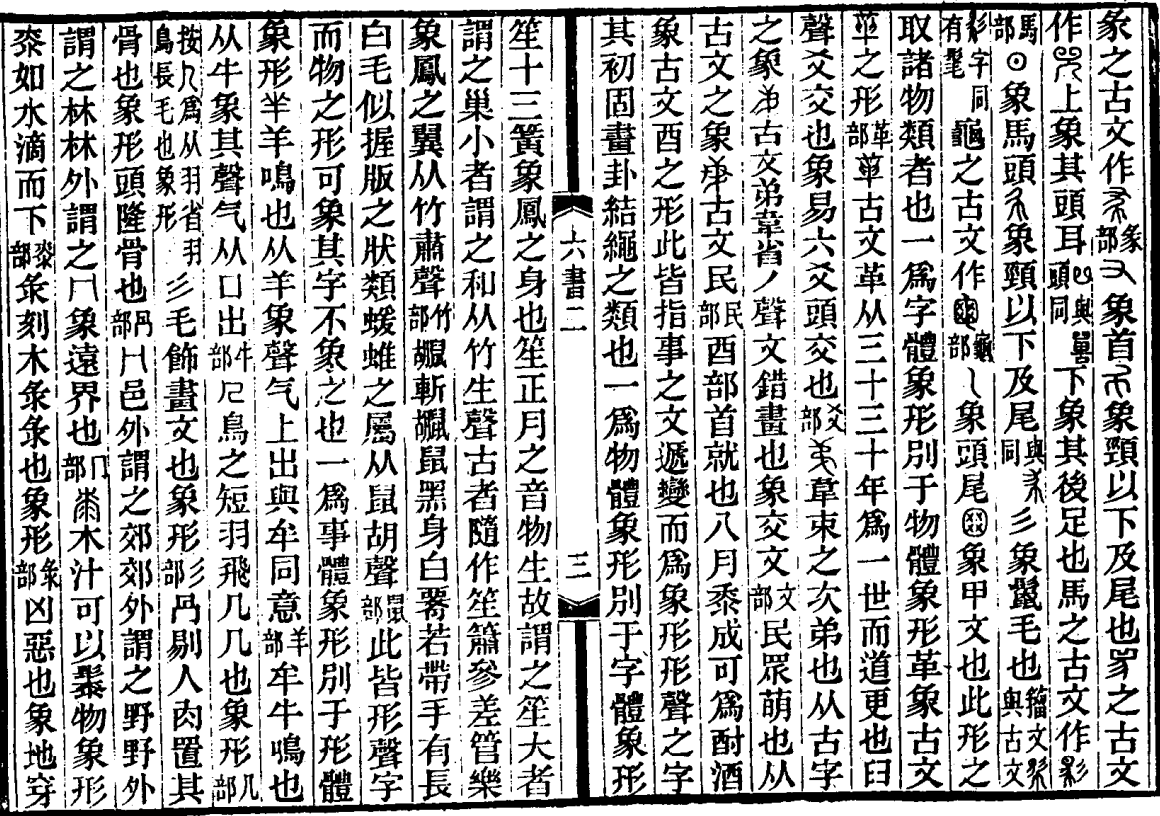 象之古文作象部象首象頸以下及尾也之古文
作上象其頭耳與同頭下象其後足也馬之古文作
馬部⊙象馬頭象頸以下及尾與同彡象鬣毛也籀文與古文
字同有髦龜之古文作龜部象頭尾象甲文也此形之
取諸物類者也一爲字體象形別于物體象形革象古文
之形革部革古文革从三十三十年爲一世而道更也臼
聲爻交也象易六爻頭交也爻部韋束之次弟也从古字
之象古文弟韋省丿聲文錯畫也象交文文部民眾萌也从
古文之象古文民民部酉部首就也八月黍成可爲酎酒
象古文酉之形此皆指事之文遞變而爲象形形聲之字
其初固畫卦結繩之類也一爲物體象形別于字體象形
六書二 三
笙十三簧象鳳之身也笙正月之音物生故謂之笙大者
謂之巢小者謂之和从竹生聲古者隨作笙簫參差管樂
象鳳之翼从竹肅聲竹部斬鼠黑身白若帶手有長
白毛似握版之狀類蝯蜼之屬从鼠胡聲鼠部此皆形聲字
而物之形可象其字不象之也一爲事體象形別于形體
象形羊鳴也从羊象聲气上出與牟同意羊部牟牛鳴也
从牛象其聲气从口出牛部鳥之短羽飛几几也象形几部
按爲从羽省羽鳥長毛也象形彡毛飾畫文也象形彡部冎剔人肉置其
骨也象形頭隆骨也冎部邑外謂之郊郊外謂之野野外
謂之林林外謂之冂象遠界也冂部木汁可以髹物象形
桼如水滴而下桼部彔刻木彔彔也象形彔部凶惡也象地穿